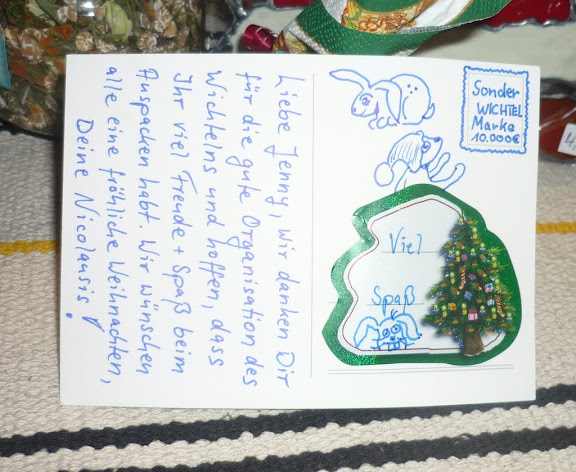 Liebe Jenny, wir danken Dir
für die gute Organisation des
Wichtelns und hoffen, dass
Ihr viel Freude + Spaß beim
Auspacken habt. Wir wünschen
alle eine fröhliche Weihnachten,
Deine Nicolausis!
Sonder
WICHTEL
Marke
10.000€
Viel
Spaß